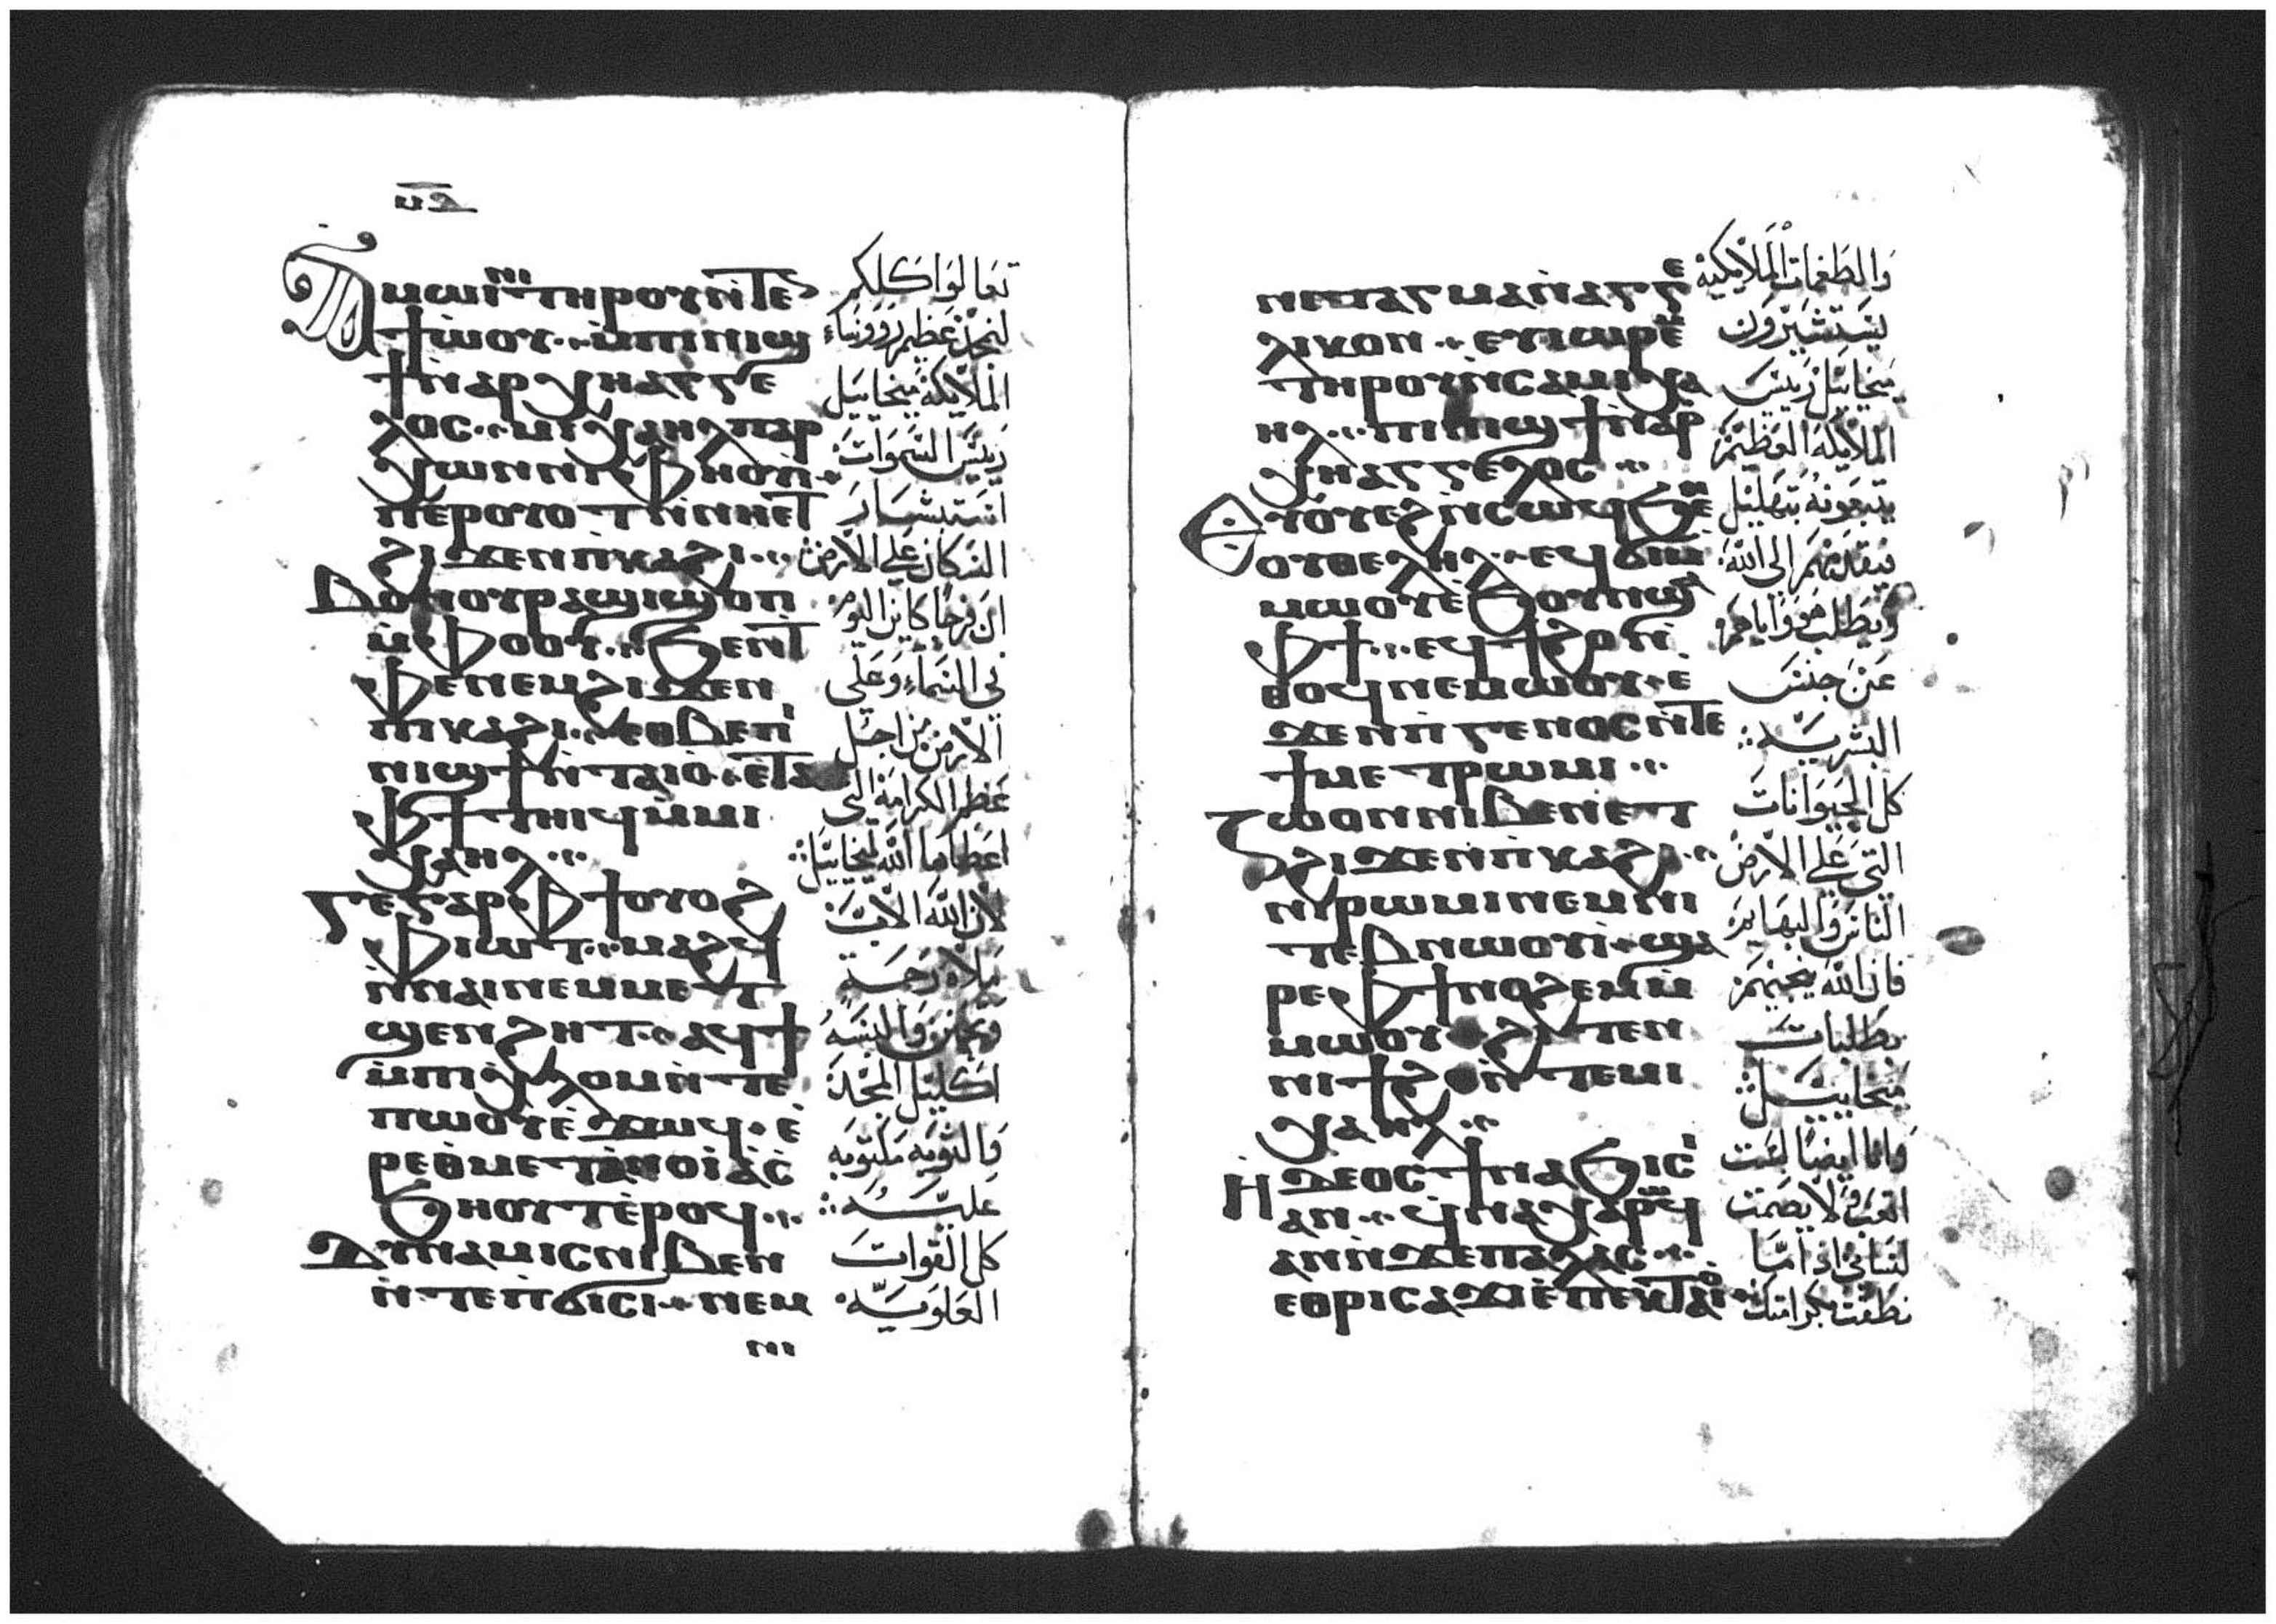 ⲁⲙⲱⲓⲛⲓ ⲧⲏⲣⲟⲩ ⲛ̀ⲧⲉⲛ
ϯⲱ̀ⲟⲩ·· ⲙ̀ⲡⲓⲛⲓϣ
ϯ ⲛ̀ⲁⲣⲭⲏⲁⲅⲅⲉ
ⲗⲟⲥ·· ⲙⲓⲭⲁⲏⲗ ⲡⲁⲣ
ⲭⲱⲛ ⲛⲓⲫⲏⲟⲩⲓ̀
ϩⲓϫⲉⲛ ⲡ̀ⲕⲁϩⲓ··
ⲃⲟⲛ ⲟⲩⲣⲁϣⲓ ϣⲟⲡ
ⲙ̀ⲫⲟⲟⲩ·· ϧⲉⲛ ⲧ
ⲫⲉ ⲛⲉⲙ ϩⲓϫⲉⲛ
ⲡⲓⲕⲁϩⲓ·· ⲉⲑⲃⲉ ⲡⲓ
ⲛⲓϣϯ ⲛ̀ⲧⲁⲓⲟ· ⲉ̀ⲧⲁ
ⲫϯ ⲧⲏⲓϥ ⲙ̀ⲙⲓ
ⲭⲁⲏⲗ··
ⲅⲉ ⲅⲁⲣ ⲫϯ ⲟⲩⲟϩ
ⲫⲓⲱⲧ·· ⲙⲁϩϥ
ⲛ̀ⲛⲁⲓ ⲛⲉⲙ ⲙⲉⲧ
ϣⲉⲛϩⲏⲧ·· ⲁϥϯ
ⲙ̀ⲡⲓⲭⲗⲟⲙ ⲛ̀ⲧⲉ
ⲡⲱⲟⲩ ⲉ̀ϫⲱϥ· ⲉ̀
ⲣⲉ ⲑⲙⲉⲧⲁⲛⲟⲓⲁ ⲥ̀
ϧⲏⲟⲩⲧ ⲉ̀ⲣⲟϥ··
ⲇⲩⲛⲁⲙⲓⲥ ⲛⲓⲃⲉⲛ
ⲛ̀ⲧⲉ ⲡ̀ϭⲓⲥⲓ· ⲛⲉⲙ
ⲛⲓ
تعالوا كلكم
لنمجد عظيم رووساء
الملايكة ميخاييل
رييس السموات
السكان على الارض
لان فرحًا كاين اليوم
في السماء وعلى
الارض من اجل
عظم الكرامة التي
اعطاها الله لميخاييل
لان الله الاب
ملاه رحمة
وتحنن والبسه
اكليل المجد
والتوبة مكتوبة
عليه
كل القوات
العلوية
ⲛⲓⲧⲁⲅⲙⲁ ⲛ̀ⲁⲅⲅⲉ
ⲗⲓⲕⲟⲛ·· ⲉⲩⲓⲱⲣⲉⲙ
ⲧⲏⲣⲟⲩ ⲛ̀ⲥⲁ ⲙⲓⲭⲁ
ⲏⲗ·· ⲡⲓⲛⲓϣϯ ⲛ̀ⲁⲣ
ⲭⲏⲁⲅⲅⲉⲗⲟⲥ··
ⲉⲩⲟⲩⲉϩ ⲛ̀ⲥⲱϥ ϧⲉⲛ
ⲟⲩⲑⲉⲗⲏⲗ·· ⲉϥϭⲓⲙ
ⲙⲱⲟⲩ ⲉ̀ϧⲟⲩⲛ ϣⲁ
ⲫϯ·· ⲉϥϯϩⲟ ⲛ̀
ⲑⲟϥ ⲛⲉⲙⲱⲟⲩ· ⲉ̀
ϫⲉⲛ ⲡ̀ⲅⲉⲛⲟⲥ ⲛ̀ⲧⲉ
ϯⲙⲉⲧⲣⲱⲙⲓ··
ⲍⲱⲟⲛ ⲛⲓⲃⲉⲛ ⲉⲧ
ϩⲓϫⲉⲛ ⲡ̀ⲕⲁϩⲓ··
ⲛⲓⲣⲱⲙⲓ ⲛⲉⲙ ⲛⲓ
ⲧⲉⲃⲛⲱⲟⲩⲓ̀· ϣⲁ
ⲣⲉ ⲫϯ ⲛⲟϩⲉⲙ ⲙ̀
ⲙⲱⲟⲩ· ϩⲓⲧⲉⲛ
ⲛⲓϯϩⲟ ⲛ̀ⲧⲉ ⲙⲓ
ⲭⲁⲏⲗ··
ⲏ̀ⲇⲉⲟⲥ ϯⲛⲁϧⲓⲥⲓ
ⲁⲛ·· ϥⲛⲁⲭⲁⲣⲱϥ
ⲁⲛ ⲛ̀ϫⲉ ⲡⲁⲗⲁⲥ··
ⲉⲑⲣⲓⲥⲁϫⲓ ⲉ̀ⲡⲉⲕⲧⲁⲓⲟ
والطغمات الملايكية
يستشيرون
ميخاييل رييس
الملايكة العظيم
يتبعونه بتهليل
فيقدمهم الى الله
ويطلب هو واياهم
عن جنس
البشرية
كل الحيوانات
التي على الارض
الناس والبهايم
فان الله ينجيهم
بطلبات
ميخاييل
وانا ايضًا لست
اتعب ولا يصمت
لساني اذا ما
نطقت بكرامتك